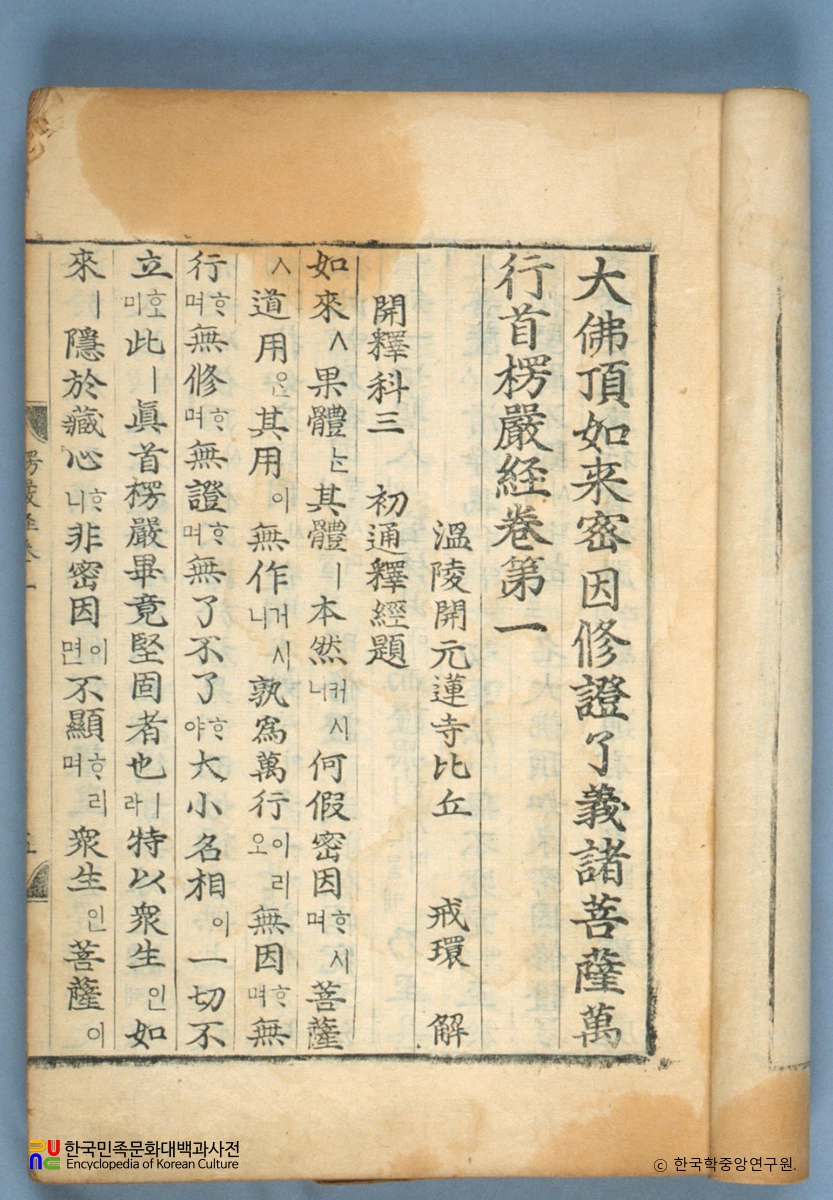 大佛頂如来密因修證了義諸菩薩萬
行首楞嚴経卷第一
溫陵開元蓮寺比丘 戒環 解
開釋科三 初通釋經題
如來ㅅ果體ᄂᆞᆫ其體ㅣ本然커시니何假密因ᄒᆞ시며菩薩
ㅅ道用ᄋᆞᆫ其用이無作거시니孰爲萬行이리오無因ᄒᆞ며無
行ᄒᆞ며無修ᄒᆞ며無證ᄒᆞ며無了不了ᄒᆞ야大小名相이一切不
立호미此ㅣ眞首楞嚴畢竟堅固者也ㅣ라特以衆生인如
來ㅣ隱於藏心ᄒᆞ니非密因이면不顯ᄒᆞ리며衆生인菩薩이
楞嚴経卷一
한국민족문화대백과사전
Encyclopedia of Korean Culture
© 한국학중앙연구원.